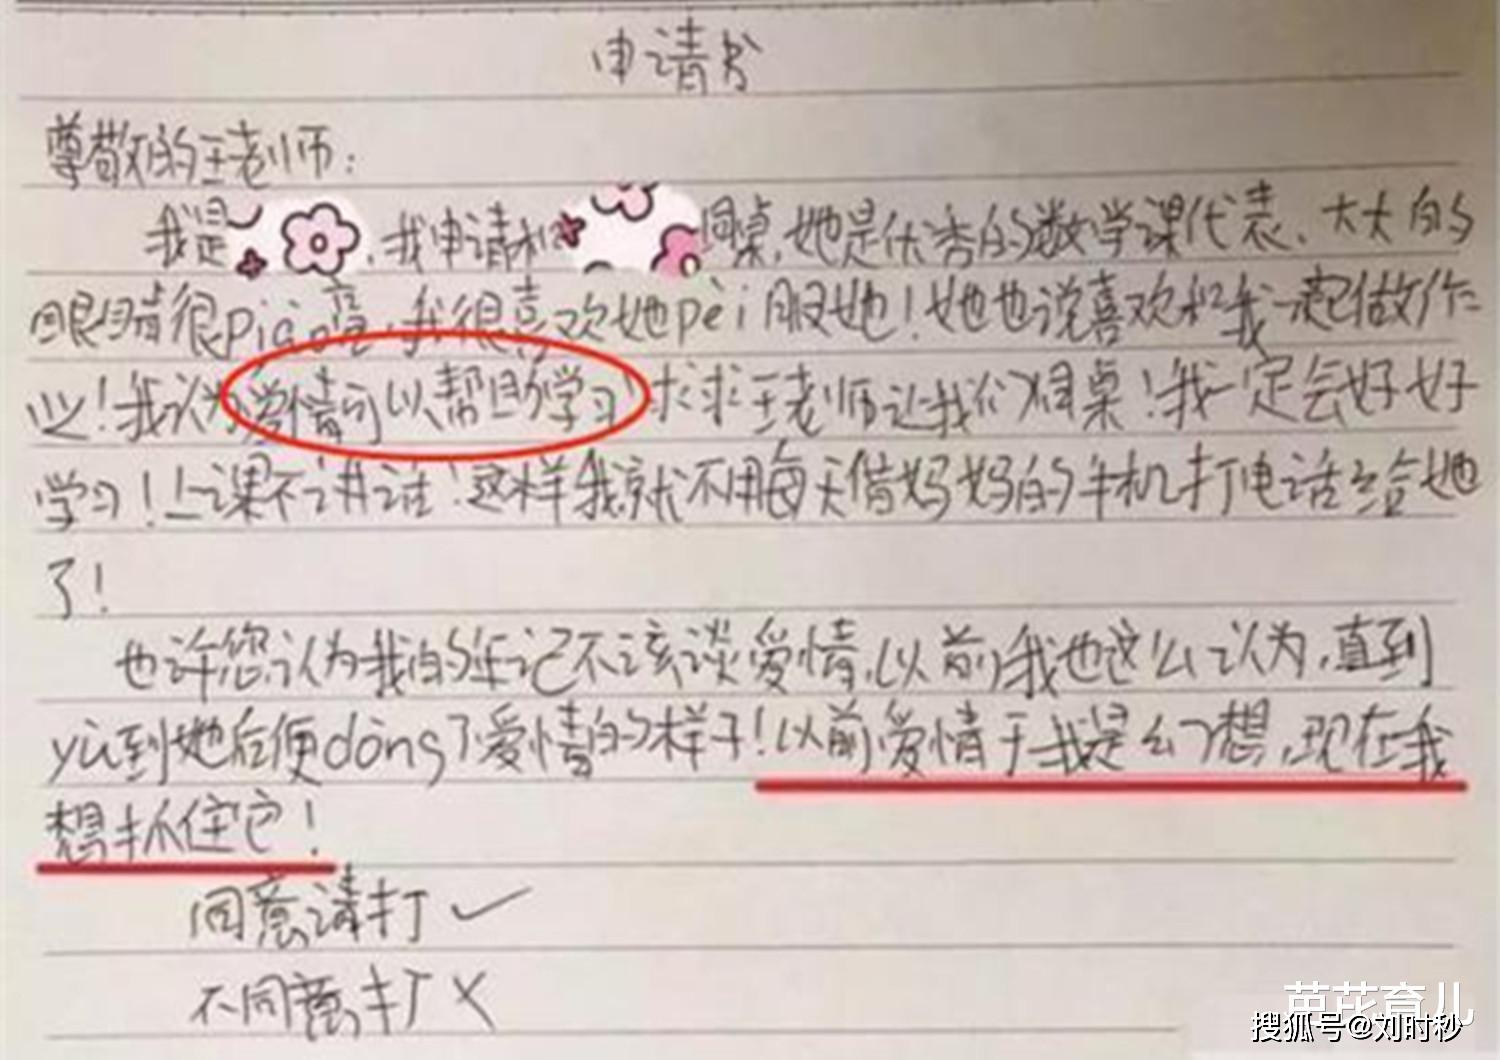 申请书
尊敬的王老师：
我是，我申请和同桌，她是优秀的数学课代表、大大的
眼睛很piào亮，我很喜欢她pèi服她！她也说喜欢和我一起做作
业！我认为爱情可以帮助学习！求求王老师让我们同桌！我一定会好好
学习！上课不讲话！这样我就不用每天借妈妈的手机打电话给她
了！
也许您认为我的年记不该谈爱情，以前我也这么认为，直到
yù到她后便dǒng了爱情的样子！以前爱情于我是幻想，现在我
想抓住它！
同意请打✓
不同意打×
芭花育儿
搜狐号@刘时秒